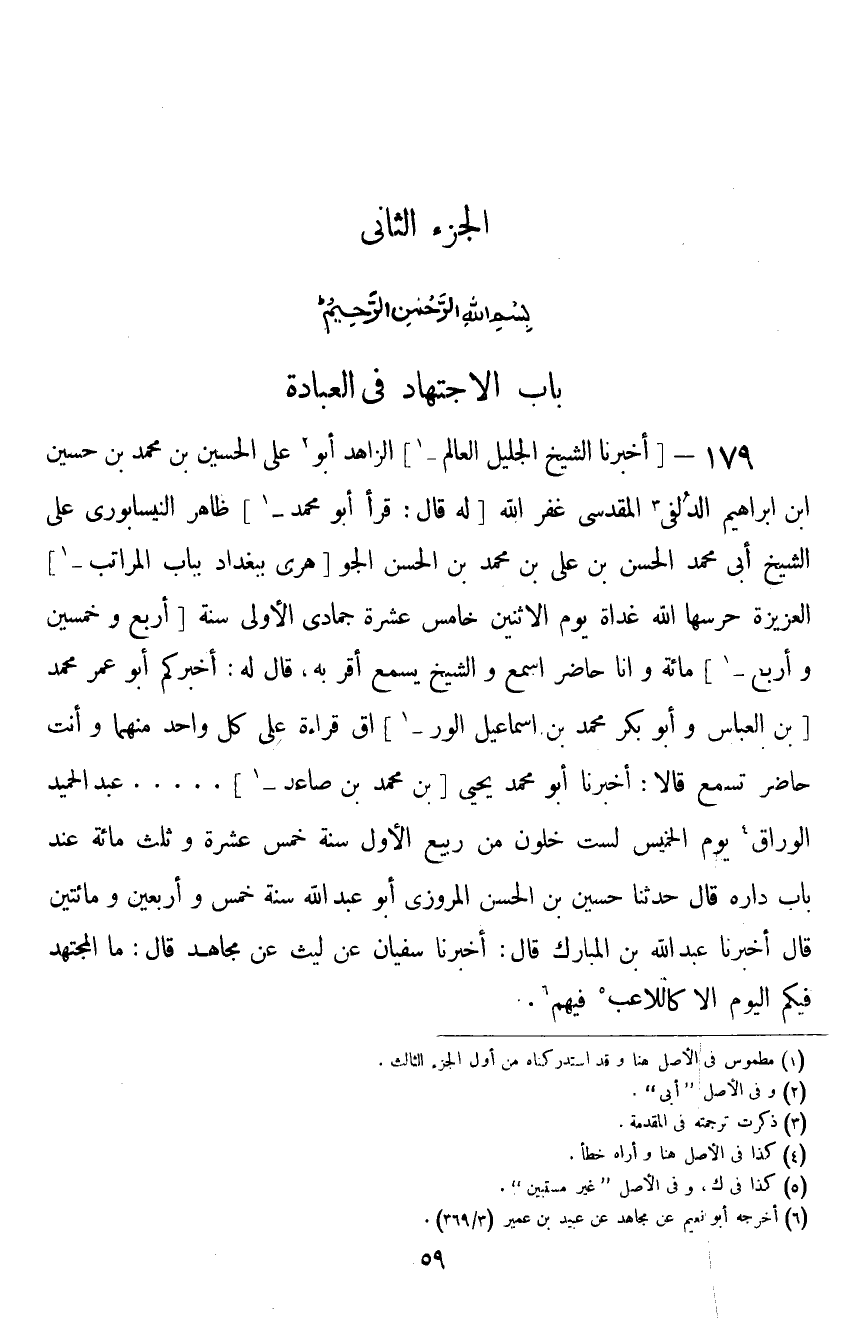 الجزء الثانى
بِسْمِ اللهِ الرَّحْمٰنِ الرَّحِيْمِ
باب الاجتهاد فى العبادة
١٧٩ – [ أخبرنا الشيخ الجليل العالم -١ ] الزاهد أبو٢ على الحسين بن محمد بن حسين
ابن ابراهيم الدُلفى٣ المقدسى غفر الله [ له قال : قرأ أبو محمد -١ ] ظاهر النيسابورى على
الشيخ أبى محمد الحسن بن على بن محمد بن الحسن الجو [ هرى ببغداد بباب المراتب -١ ]
العزيزة حرسها الله غداة يوم الاثنين خامس عشرة جمادى الأولى سنة [ أربع و خمسين
و أربع -١ ] مائة و انا حاضر اسمع و الشيخ يسمع أقر به ، قال له : أخبركم أبو عمر محمد
[ بن العباس و أبو بكر محمد بن اسماعيل الور -١ ] اق قراءة على كل واحد منهما و أنت
حاضر تسمع قالا : أخبرنا أبو محمد يحيى [ بن محمد بن صاعد -١ ] . . . . . عبد الحميد
الوراق٤ يوم الخميس لست خلون من ربيع الأول سنة خمس عشرة و ثلث مائة عند
باب داره قال حدثنا حسين بن الحسن المروزى أبو عبد الله سنة خمس و أربعين و مائتين
قال أخبرنا عبد الله بن المبارك قال : أخبرنا سفيان عن ليث عن مجاهد قال : ما المجتهد
فيكم اليوم الا كاللاعب٥ فيهم٦ .
(١) مطموس فى الأصل هنا و قد استدركناه من أول الجزء الثالث .
(٢) و فى الأصل ”أبى“ .
(٣) ذكرت ترجمته فى المقدمة .
(٤) كذا فى الأصل هنا و أراه خطأ .
(٥) كذا فى ك ، و فى الأصل ”غير مستبين“ .
(٦) أخرجه أبو نعيم عن مجاهد عن عبيد بن عمير (٣/٣٦٩) .
٥٩